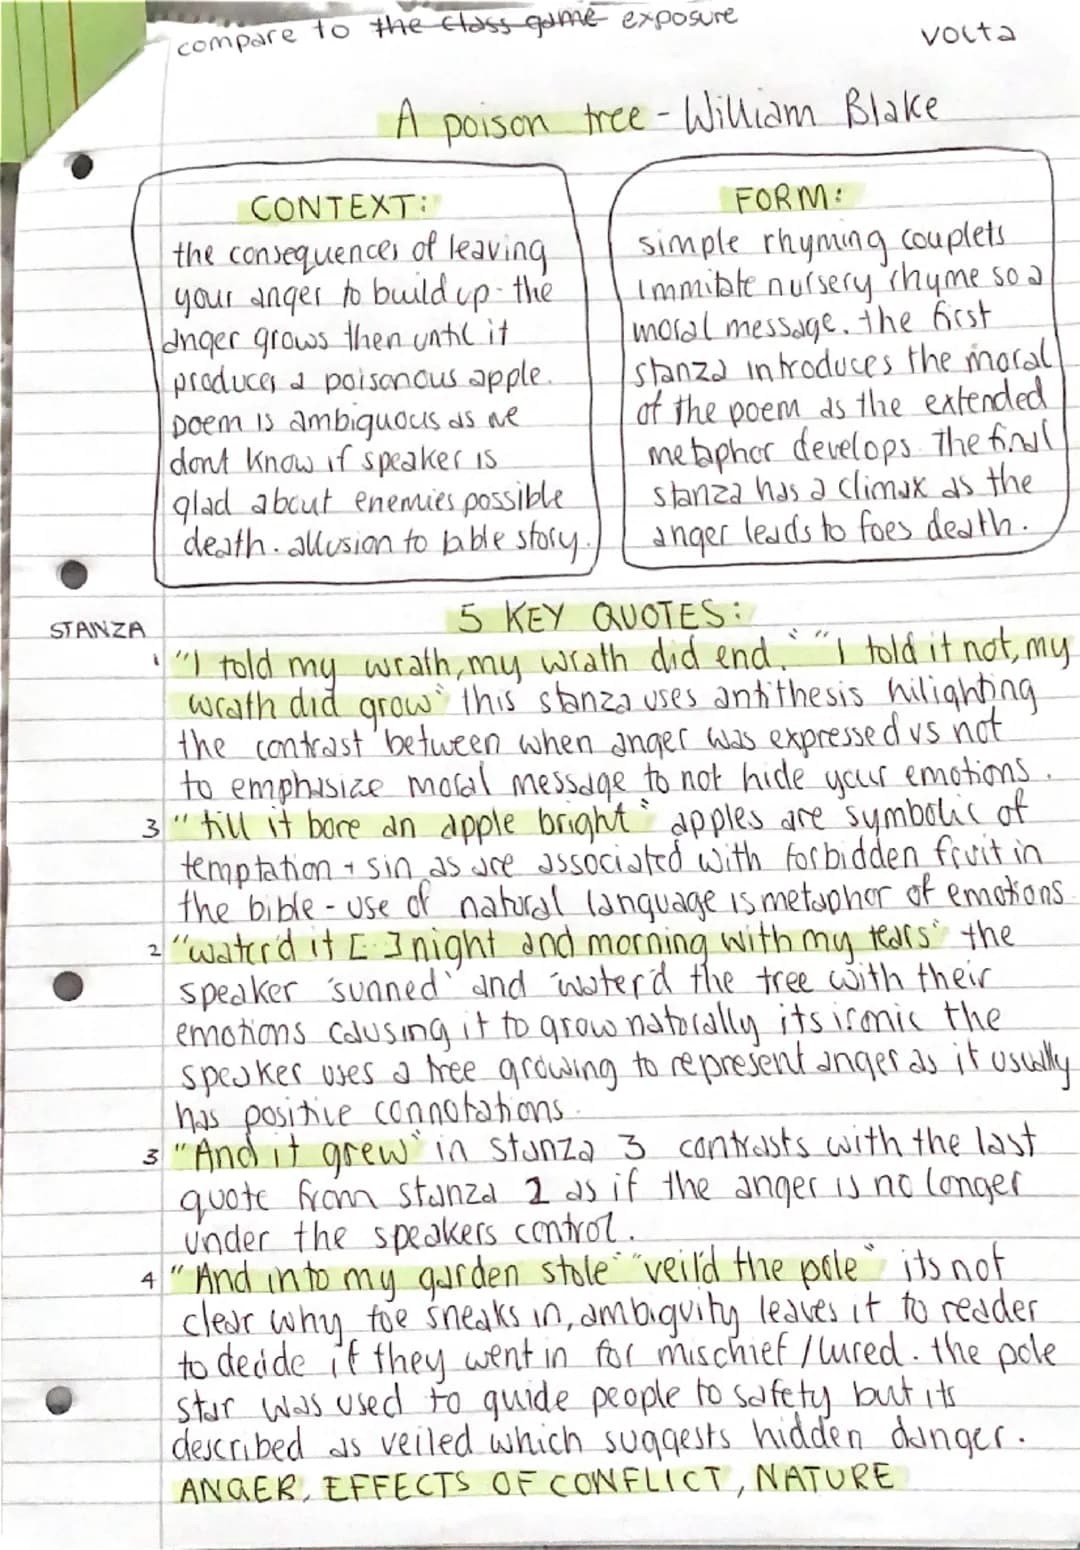 compare to the class game exposure
volta
A poison tree - William Blake
CONTEXT:
the consequences of leaving
your anger to build up - the
anger grows then until it
produces a poisonous apple.
poem is ambiguous as we
dont know if speaker is
glad about enemies possible
death. allusion to bible story.
FORM:
simple rhyming couplets
immitate nursery rhyme so a
moral message. the first
stanza introduces the moral
of the poem as the extended
metaphor develops. The final
stanza has a climax as the
anger leads to foes death.
5 KEY QUOTES:
STANZA
1 "I told my wrath, my wrath did end." "I told it not, my
wrath did grow" this stanza uses antithesis hilighting
the contrast between when anger was expressed vs not
to emphasize moral message to not hide your emotions.
3 "till it bore an apple bright" apples are symbolic of
temptation + sin as are associated with forbidden fruit in
the bible - use of natural language is metaphor of emotions
2 "water'd it [..] night and morning with my tears" the
speaker 'sunned' and 'water'd the tree with their
emotions causing it to grow naturally its ironic the
speaker uses a tree growing to represent anger as it usually
has positive connotations.
3 "And it grew" in stanza 3 contrasts with the last
quote from stanza 2 as if the anger is no longer
under the speakers control.
4 "And into my garden stole" "veil'd the pole" its not
clear why foe sneaks in, ambiguity leaves it to reader
to decide if they went in for mischief / lured. the pole
star was used to guide people to safety but its
described as veiled which suggests hidden danger.
ANGER, EFFECTS OF CONFLICT, NATURE